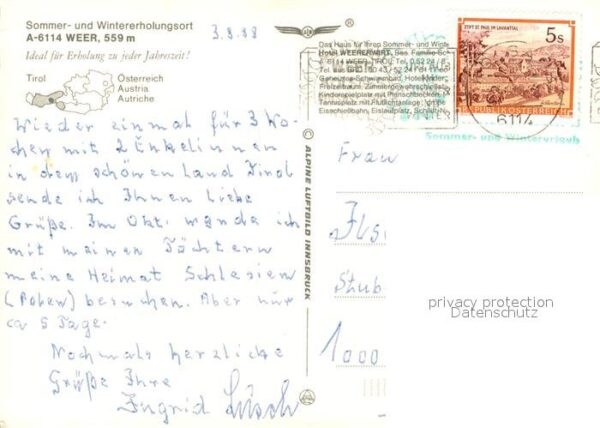 Sommer- und Wintererholungsort
A-6114 WEER, 559 m
Ideal für Erholung zu jeder Jahreszeit!
Tirol
Österreich
Austria
Autriche
3.8.88
Wieder einmal für 3 Wo-
chen mit 2 Enkelinnen
in dem schönen Land Tirol
sende ich Ihnen liebe
Grüße. Im Okt. werde ich
mit meinen Töchtern
meine Heimat Schlesien
(Polen) besuchen. Aber nur
ca 5 Tage.
Nochmals herzliche
Grüße Ihre
Ingrid
© ALPINE LUFTBILD INNSBRUCK
Das Haus für Ihren Sommer- und Winte
Hotel WEERERWIRT, Bes. Familie
A-6114 WEER, TIROL, Tel. 0 52 24 / 6
STIFT ST. PAUL IM LAVANTTAL
5s
REPUBLIK ÖSTERREICH
6114
Sommer- und Winterurlaub
Frau
Ilse
Stub
1000
privacy protection
Datenschutz